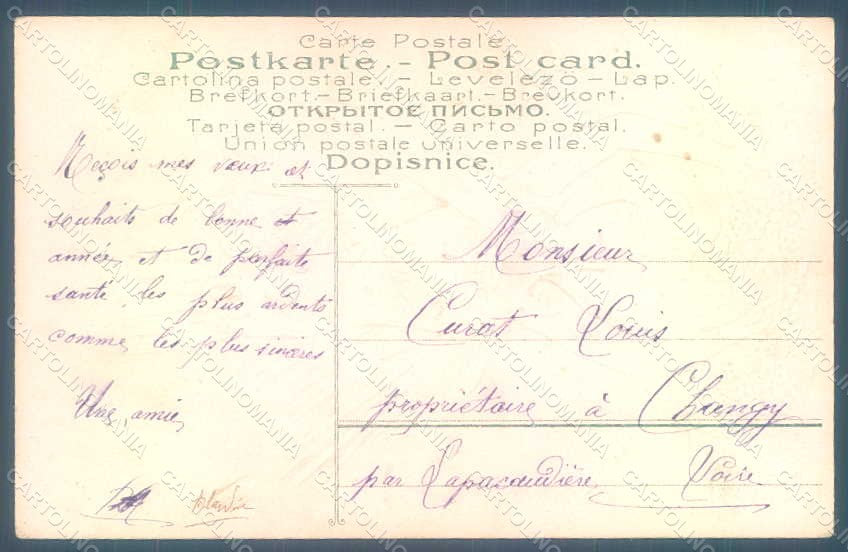 Carte Postale
Postkarte. - Post card.
Cartolina postale. - Levelezö - Lap.
Brefkort. - Briefkaart. - Brevkort.
ОТКРЫТОЕ ПИСЬМО.
Tarjeta postal. - Carto postal.
Union postale universelle.
Dopisnice.
Reçois mes vœux et
souhaits de bonne et
année et de parfaite
santé les plus ardents
comme les plus sincères
Une amie
Blandine
Monsieur
Curat Louis
propriétaire à Changy
par Lapacaudière Loire
CARTOLINOMANIA